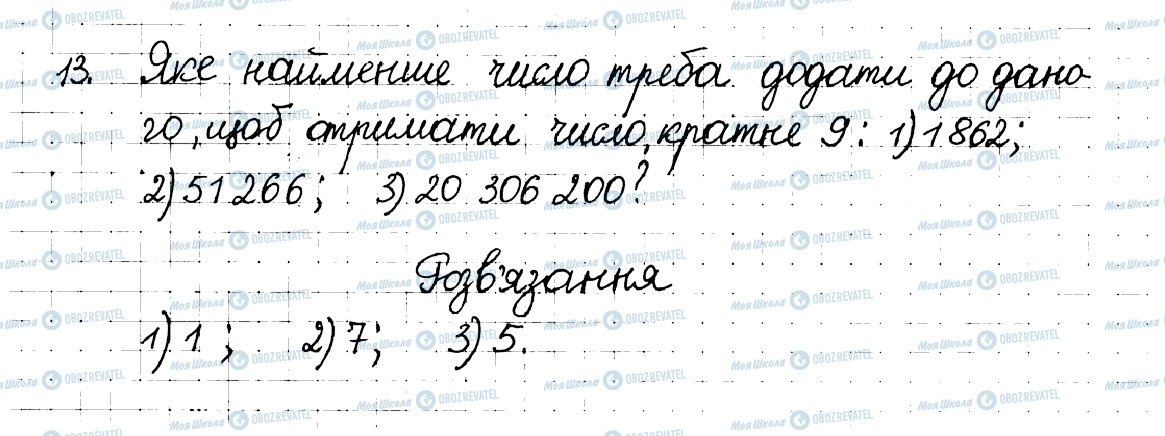 13. Яке найменше число треба додати до дано-
го, щоб отримати число, кратне 9: 1) 1862;
2) 51 266; 3) 20 306 200?
Розв'язання
1) 1; 2) 7; 3) 5.